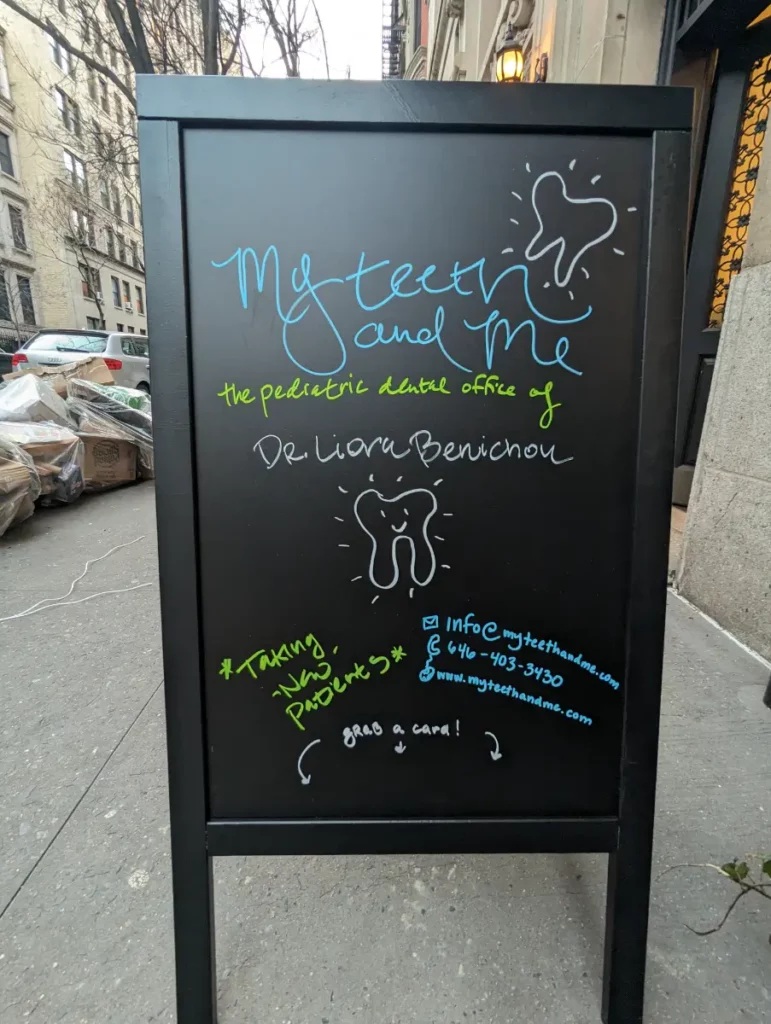 My teeth
and Me
the pediatric dental office of
Dr. Liora Benichou
*Taking
-New-
patients*
info@myteethandme.com
646-403-3430
www.myteethandme.com
grab a card!